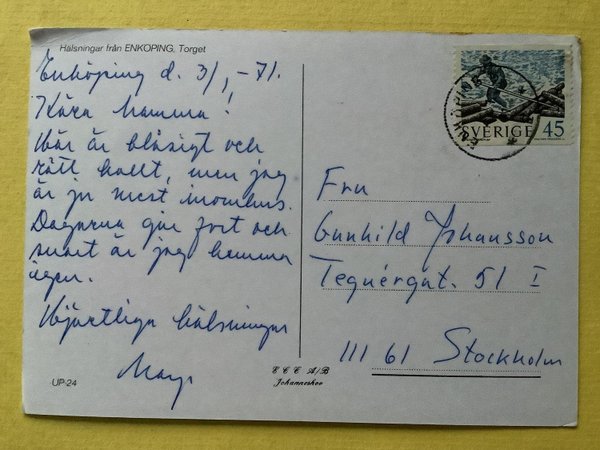 Hälsningar från ENKÖPING. Torget
Enköping d. 3/1, -71.
Kära Mamma!
Här är blåsigt och
rätt kallt, men jag
är ju mest inomhus.
Dagarna går fort och
snart är jag hemma
igen.
Hjärtliga hälsningar
May
UP-24
E C E A/B
Johanneshov
ENKÖPING
SVERIGE 45
Fru
Gunhild Johansson
Tegnérgat. 51 I
111 61 Stockholm